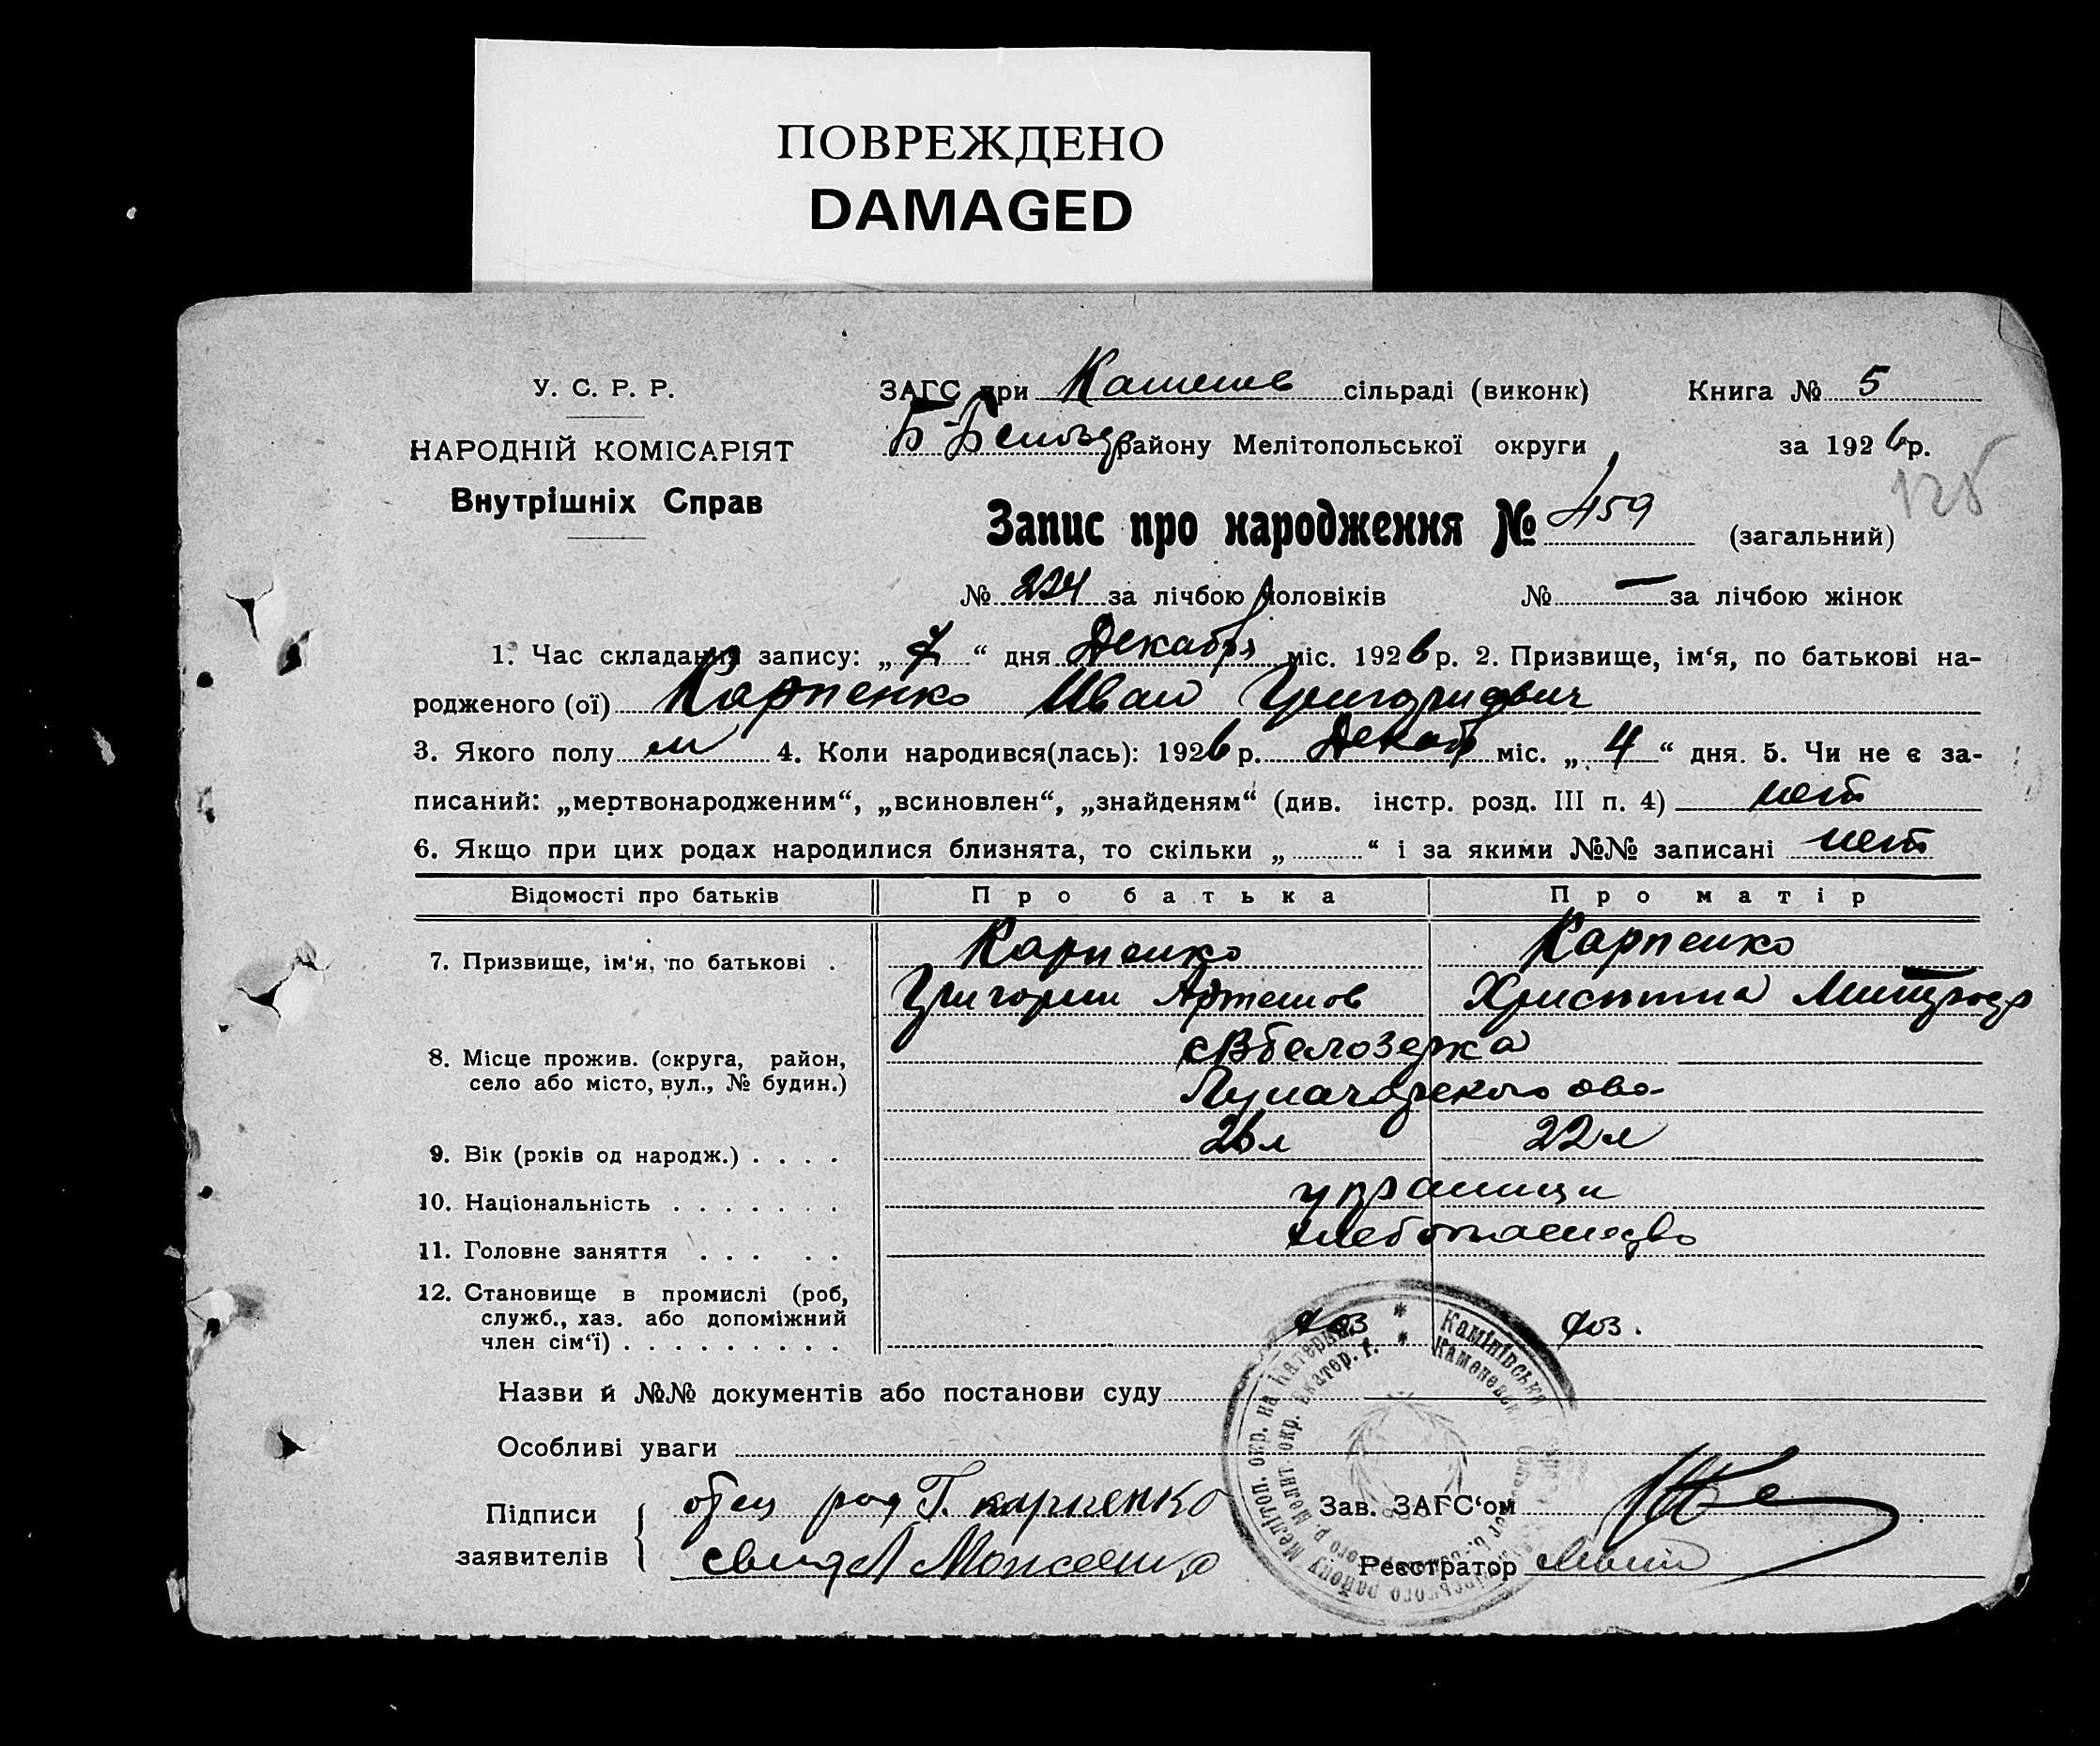 ПОВРЕЖДЕНО
DAMAGED
У. С. Р. Р.
НАРОДНІЙ КОМІСАРІЯТ
Внутрішніх Справ
ЗАГС при Каменс сільраді (виконк) Книга № 5
Б-Белоз району Мелітопольської округи за 1926 р.
Запис про народження № 459 (загальний)
№ 224 за лічбою чоловіків № — за лічбою жінок
1. Час складання запису: „7“ дня Декабря міс. 1926 р. 2. Призвище, ім‘я, по батькові на-
родженого (ої) Карпенко Иван Григориевич
3. Якого полу м 4. Коли народився(лась): 1926 р. Декаб міс. „4“ дня. 5. Чи не є за-
писаний: „мертвонародженим“, „всиновлен“, „знайденям“ (див. інстр. розд. III п. 4) нет
6. Якщо при цих родах народилися близнята, то скільки „ “ і за якими №№ записані нет
Відомості про батьків Про батька Про матір
7. Призвище, ім‘я, по батькові . Карпенко Карпенко
Григории Артемов Христина
8. Місце прожив. (округа, район, село або місто, вул., № будин.) Белозерка
Луначарского
9. Вік (років од народж.) . . . . 26 л 22 л
10. Національність . . . . . . . украинци
11. Головне заняття . . . . . хлебопашество
12. Становище в промислі (роб, служб., хаз. або допоміжний член сім‘ї) . . . . . . . . . хоз хоз.
Назви й №№ документів або постанови суду
Особливі уваги
Підписи заявителів отец Г. Карпенко
Зав. ЗАГС‘ом
Реєстратор
Камінівська